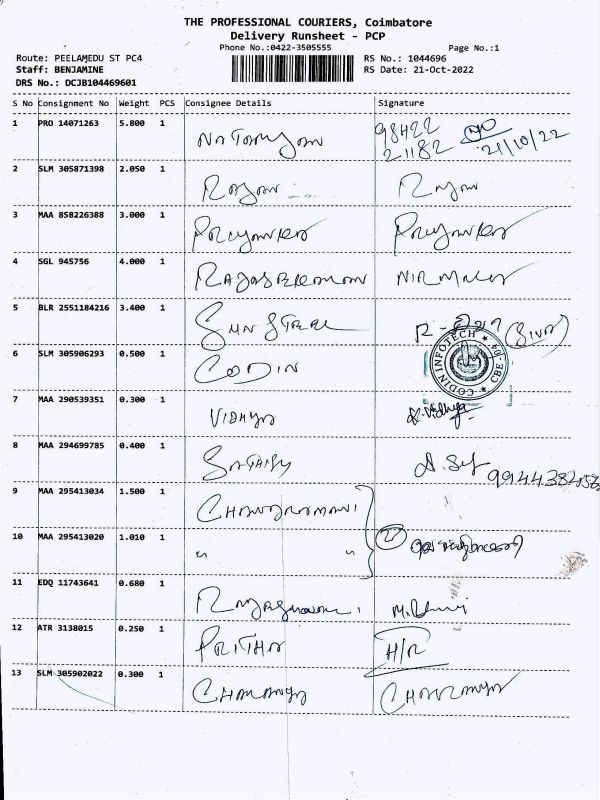 THE PROFESSIONAL COURIERS, Coimbatore
Delivery Runsheet - PCP
Phone No.:0422-3505555
Page No.:1
Route: PEELAMEDU ST PC4
RS No.: 1044696
Staff: BENJAMINE
RS Date: 21-Oct-2022
DRS No.: DCJB104469601
S No Consignment No Weight PCS Consignee Details Signature
1 PRO 14071263 5.800 1 98422
21182 21/10/22
2 SLM 305871398 2.050 1 Rajan Rajan
3 MAA 858226388 3.000 1 Priyanka Priyanka
4 SGL 945756 4.000 1 Nirmala
5 BLR 2551184216 3.400 1 Sun Steel (Siva)
6 SLM 305906293 0.500 1 CODIN CODIN INFOTECH CBE - 04
7 MAA 290539351 0.300 1 VIDHYA Vidhya
8 MAA 294699785 0.400 1 SATHISH
9 MAA 295413034 1.500 1 CHANDRAMANI
10 MAA 295413020 1.010 1 " " 2
11 EDQ 11743641 0.680 1
12 ATR 3138015 0.250 1 PRITHA H/R
13 SLM 305902022 0.300 1